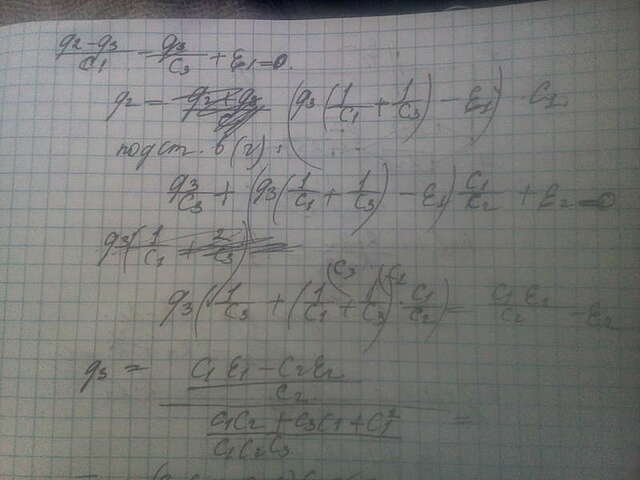 (q2 - q3)/C1 - q3/C3 + ε1 = 0.
q2 = (q3(1/C1 + 1/C3) - ε1) · C1
подст. в (2):
q3/C3 + (q3(1/C1 + 1/C3) - ε1) C1/C2 + ε2 = 0
q3(1/C1 + 2/C3)
q3(1/C3 + (1/C1 + 1/C3) · C1/C2) = C1 ε1/C2 - ε2
q3 = ((C1 ε1 - C2 ε2)/C2)/((C1C2 + C3C1 + C1²)/(C1C2C3)) =